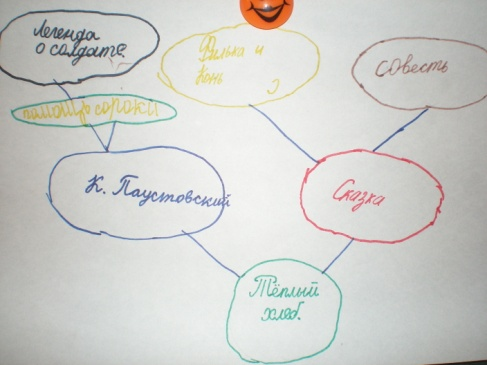 Легенда
о солдате
Филька и
конь
совесть
помощь сороки
К. Паустовский
Сказка
Тёплый
хлеб.